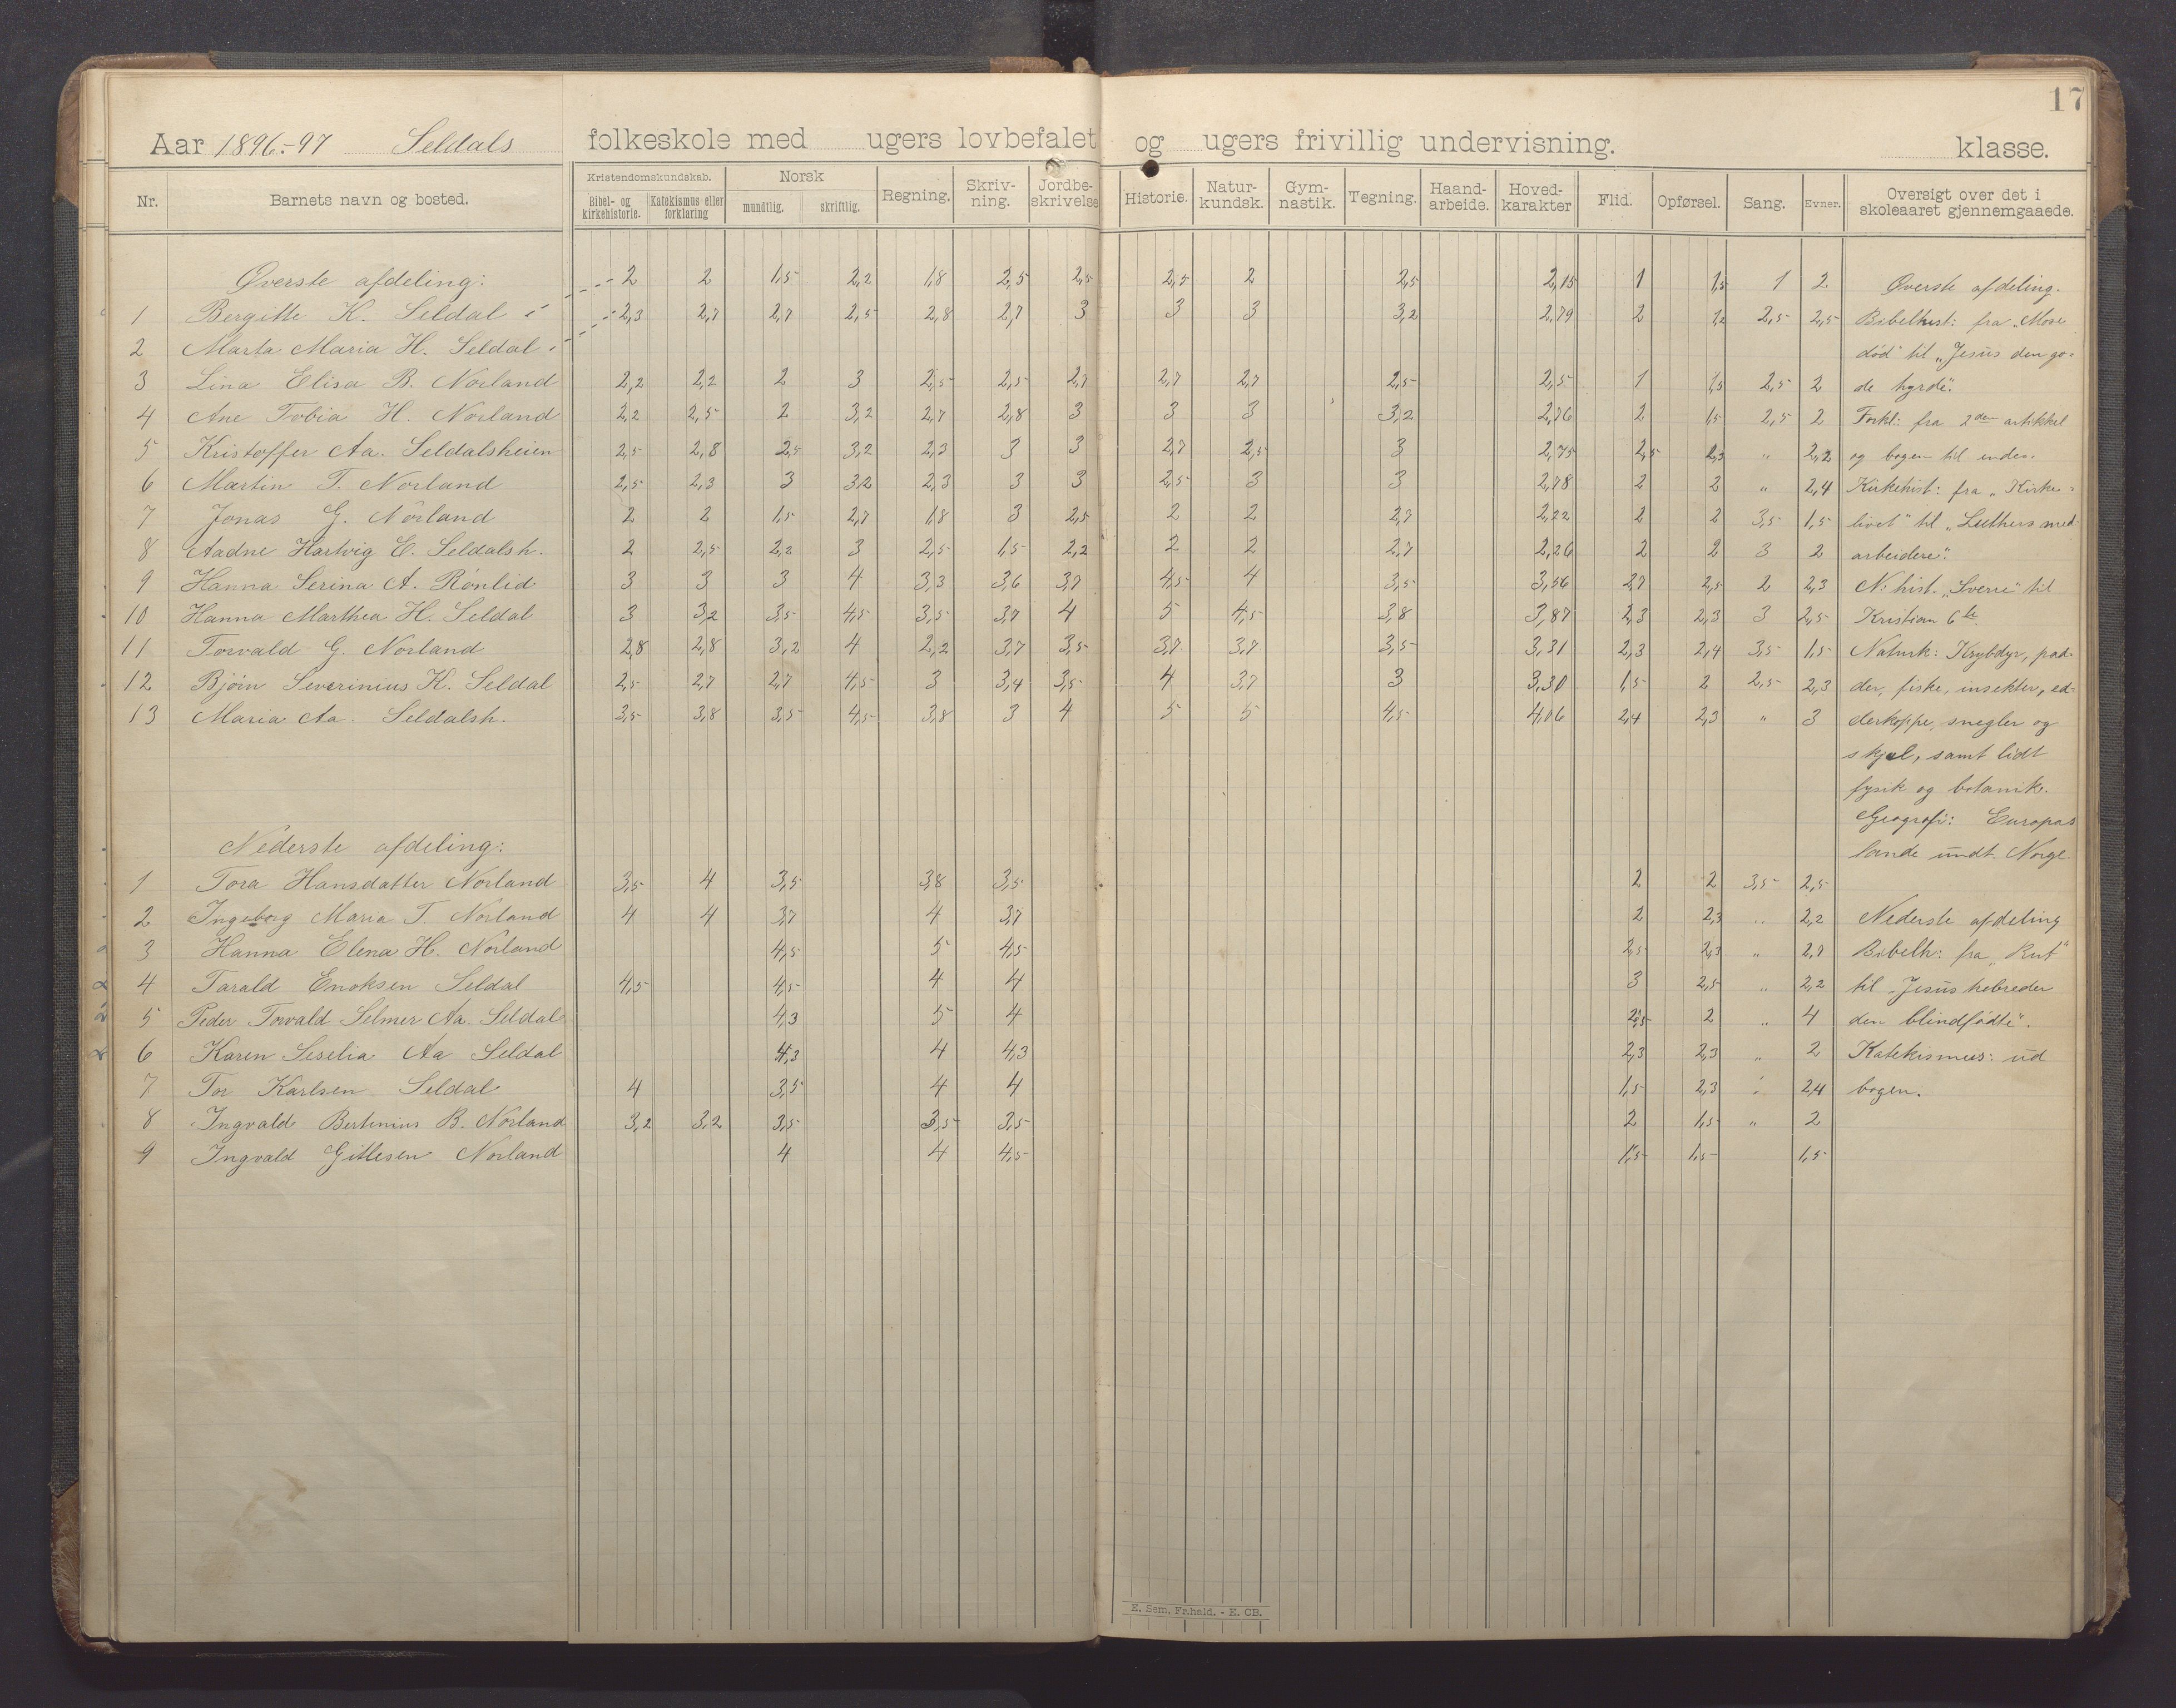 17
Aar 1896.-97 Seldals folkeskole med ugers lovbefalet og ugers frivillig undervisning. klasse.
Nr. Barnets navn og bosted. Kristendomskundskab. Bibel- og kirkehistorie. Katekismus eller forklaring Norsk mundtlig. skriftlig. Regning. Skriv-ning. Jordbe-skrivelse Historie. Natur-kundsk. Gym-nastik. Tegning. Haand-arbeide. Hoved-karakter Flid. Opførsel. Sang. Evner. Oversigt over det i skoleaaret gjennemgaaede.
Øverste afdeling: 2 2 1,5 2,2 1,8 2,5 2,5 2,5 2 2,5 2,15 1 1,5 1 2 Øverste afdeling.
1 Bergitte K. Seldal 2,3 2,7 2,7 2,5 2,8 2,7 3 3 3 3,2 2,79 2 1,2 2,5 2,5 Bibelhist: fra „Mose
2 Marta Maria H. Seldal død" til „Jesus den go-
3 Lina Elisa B. Norland 2,2 2,2 2 3 2,5 2,5 2,7 2,7 2,7 2,5 2,5 1 1,5 2,5 2 de hyrde".
4 Ane Tobia H. Norland 2,2 2,5 2 3,2 2,7 2,8 3 3 3 3,2 2,76 2 1,5 2,5 2 Forkl: fra 2den artikkel
5 Kristoffer Aa. Seldalsheien 2,5 2,8 2,5 3,2 2,3 3 3 2,7 2,5 3 2,75 2,5 2,3 „ 2,2 og bogen til ende.
6 Martin T. Norland 2,5 2,3 3 3,2 2,3 3 3 2,5 3 3 2,78 2 2 „ 2,4 Kirkehist: fra „Kirke-
7 Jonas G. Norland 2 2 1,5 2,7 1,8 3 2,5 2 2 2,7 2,22 2 2 3,5 1,5 livet" til „Luthers med
8 Aadne Hartvig E. Seldalsh. 2 2,5 2,2 3 2,5 1,5 2,2 2 2 2,7 2,26 2 2 3 2 arbeidere".
9 Hanna Serina A. Rønlid 3 3 3 4 3,3 3,6 3,7 4,5 4 3,5 3,56 2,7 2,5 2 2,3 N. hist. „Sverre" til
10 Hanna Marthea H. Seldal 3 3,2 3,5 4,5 3,5 3,7 4 5 4,5 3,8 3,87 2,3 2,3 3 2,5 Kristian 6te.
11 Torvald G. Norland 2,8 2,8 3,2 4 2,2 3,7 3,5 3,7 3,7 3,5 3,31 2,3 2,4 3,5 1,5 Naturk: Krybdyr, pad-
12 Bjørn Severinius K. Seldal 2,5 2,7 2,7 4,5 3 3,4 3,5 4 3,7 3 3,30 1,5 2 2,5 2,3 der, fiske, insekter, ed-
13 Maria Aa. Seldalsh. 3,5 3,8 3,5 4,5 3,8 3 4 5 5 4,5 4,06 2,4 2,3 „ 3 derkoppe, snegler og
skjæl, samt lidt
fysik og botanik.
Geografi: Europas
Nederste afdeling: lande undt. Norge.
1 Tora Hansdatter Norland 3,5 4 3,5 3,8 3,5 2 2 3,5 2,5
2 Ingeborg Maria T. Norland 4 4 3,7 4 3,7 2 2,3 „ 2,2 Nederste afdeling
3 Hanna Elena H. Norland 4,5 5 4,5 2,5 2,3 „ 2,7 Bibelh: fra „Rut"
4 Tarald Enoksen Seldal 4,5 4,5 4 4 3 2,5 „ 2,2 til „Jesus helbreder
5 Peder Torvald Selmer Aa. Seldal 4,3 5 4 2,5 2 „ 4 den blindfødte".
6 Karen Seselia Aa Seldal 4,3 4 4,3 2,3 2,3 „ 2 Katekismus: ud
7 Tor Karlsen Seldal 4 3,5 4 4 1,5 2,3 „ 2,4 bogen.
8 Ingvald Bertinius B. Norland 3,2 3,2 3,5 3,5 3,5 2 1,5 „ 2
9 Ingvald Gitlesen Norland 4 4 4,5 1,5 1,5 1,5
E. Sem, Fr.hald. - E. CB.